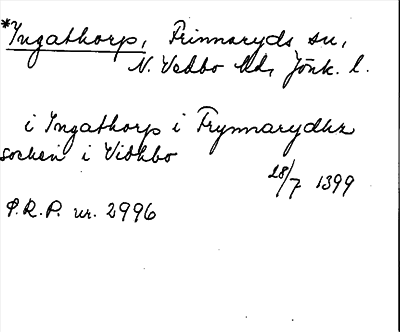 *Ingathorp, Frinnaryds sn,
N. Vedbo hd, Jönk. l.
i Ingathorp i Frynnarydhz
socken i Vidhbo
28/7 1399
P.R.P. nr. 2996